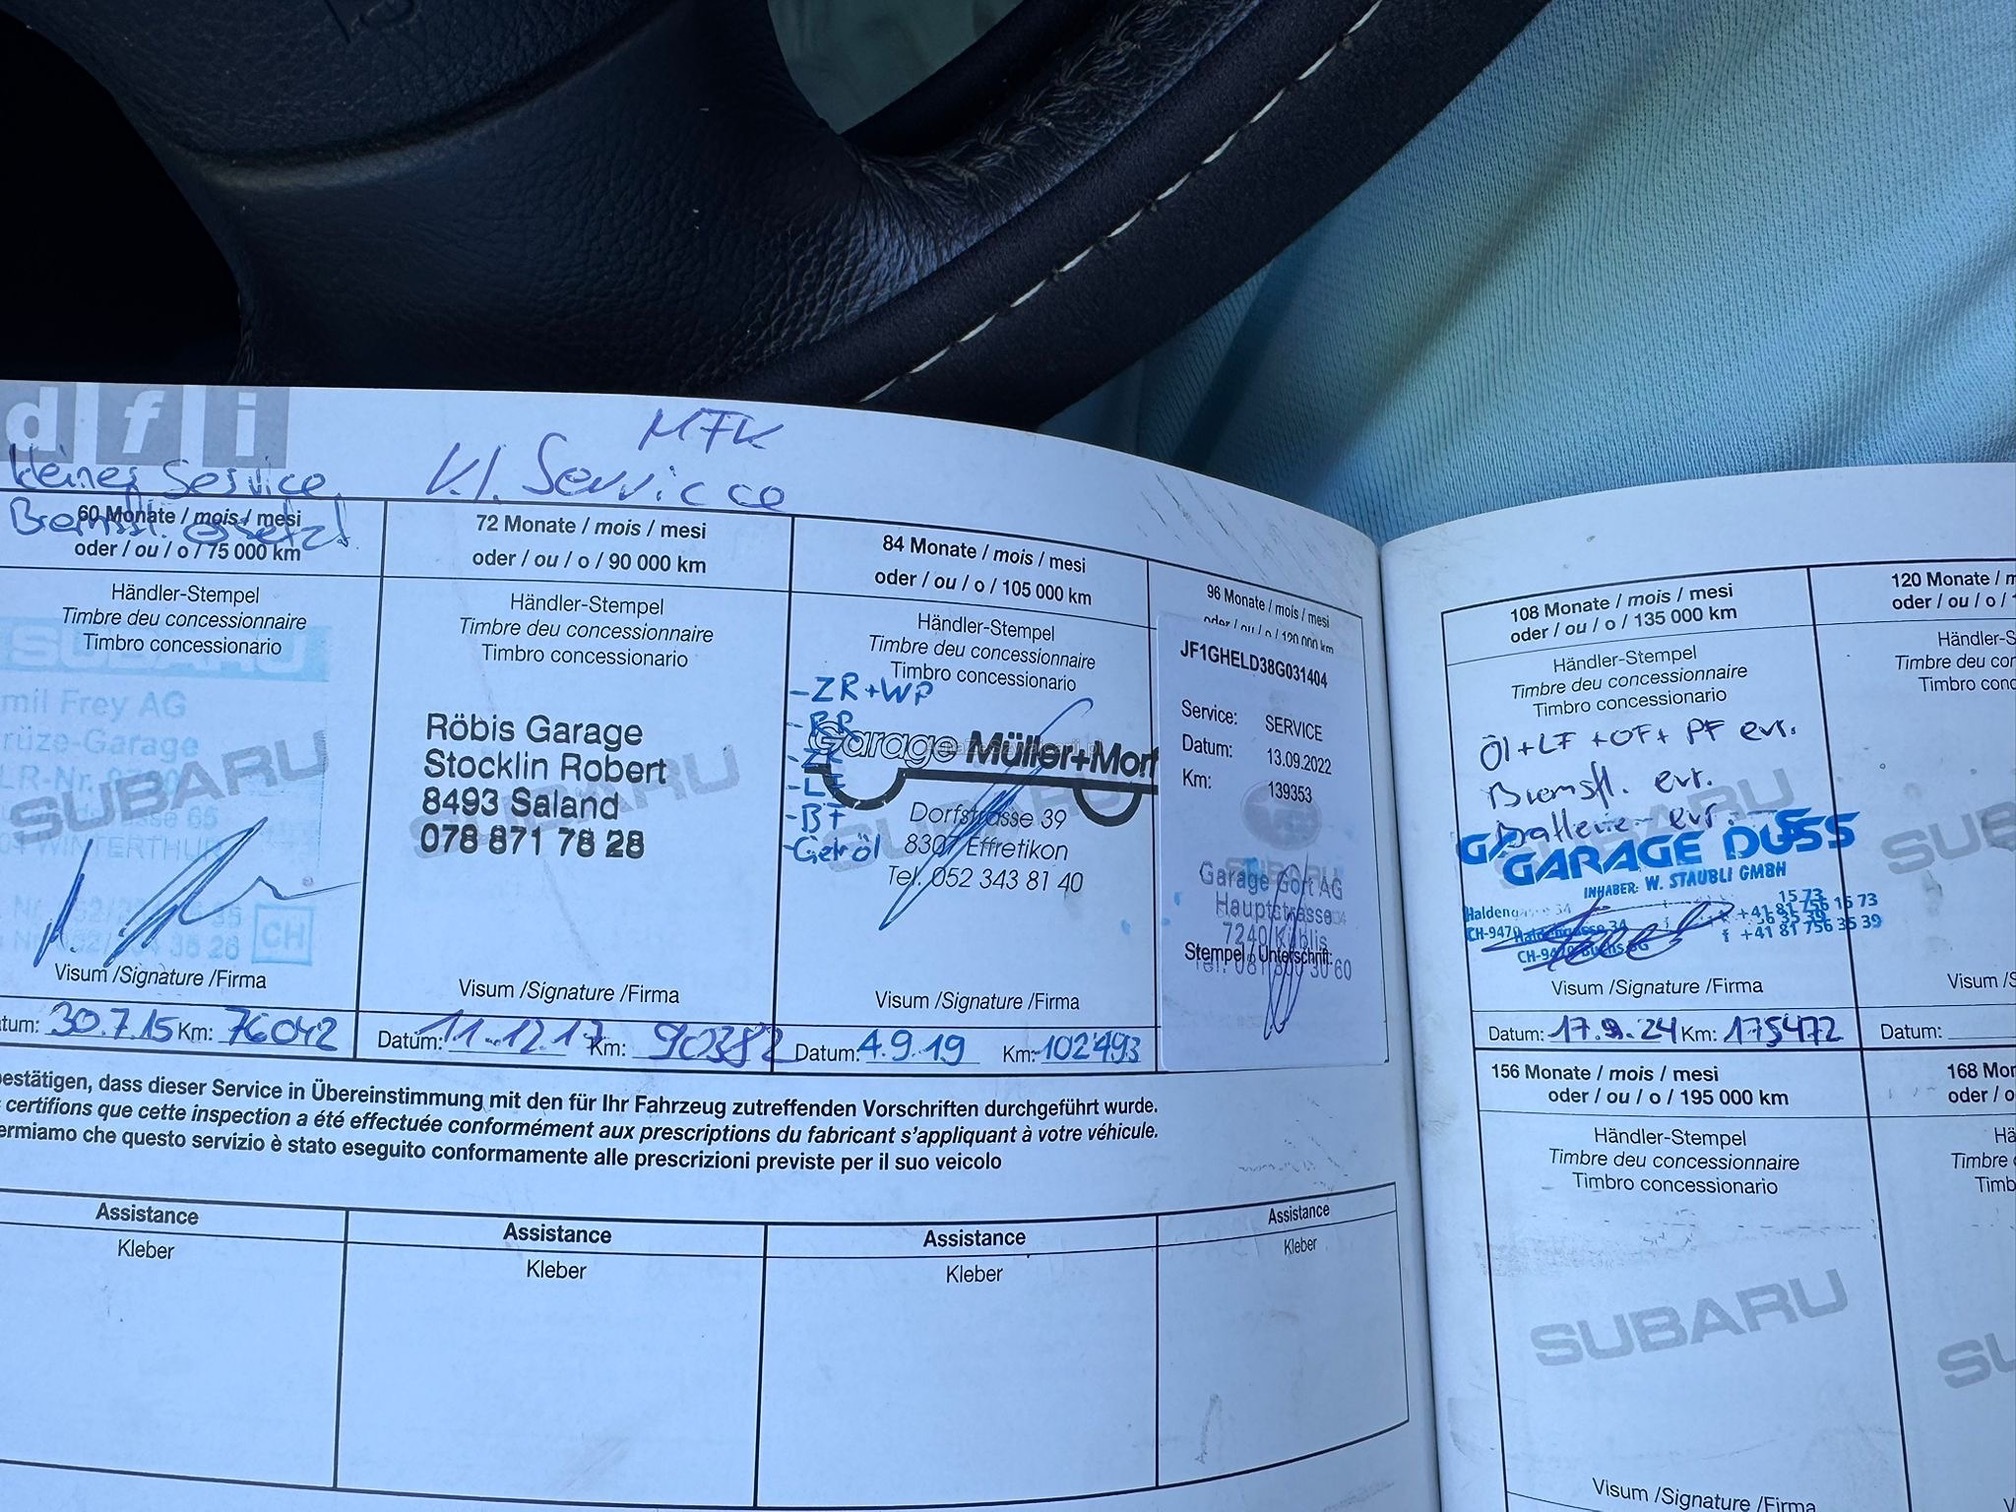 d f i
kleiner Service
MFK
kl. Servicce
60 Monate / mois / mesi
oder / ou / o / 75 000 km
Händler-Stempel
Timbre deu concessionnaire
Timbro concessionario
SUBARU
mil Frey AG
rüze-Garage
SUBARU
WINTERTHUR
CH
Visum /Signature /Firma
tum: 30.7.15 Km: 76042
72 Monate / mois / mesi
oder / ou / o / 90 000 km
Händler-Stempel
Timbre deu concessionnaire
Timbro concessionario
Röbis Garage
Stocklin Robert
8493 Saland
078 871 78 28
SUBARU
Visum /Signature /Firma
Datum: 11.12.17 Km: 90382
84 Monate / mois / mesi
oder / ou / o / 105 000 km
Händler-Stempel
Timbre deu concessionnaire
Timbro concessionario
-ZR+WP
Garage Müller+Morf
-LF
-BF
-Getröl
Dorfstrasse 39
8307 Effretikon
Tel. 052 343 81 40
Visum /Signature /Firma
Datum: 4.9.19 Km: 102'493
96 Monate / mois / mesi
oder / ou / o / 120 000 km
JF1GHELD38G031404
Service: SERVICE
Datum: 13.09.2022
Km: 139353
SUBARU
Garage Gort AG
Hauptstrasse
7240 Küblis
Stempel / Unterschrift:
estätigen, dass dieser Service in Übereinstimmung mit den für Ihr Fahrzeug zutreffenden Vorschriften durchgeführt wurde.
certifions que cette inspection a été effectuée conformément aux prescriptions du fabricant s'appliquant à votre véhicule.
ermiamo che questo servizio è stato eseguito conformamente alle prescrizioni previste per il suo veicolo
Assistance
Kleber
Assistance
Kleber
Assistance
Kleber
Assistance
Kleber
108 Monate / mois / mesi
oder / ou / o / 135 000 km
Händler-Stempel
Timbre deu concessionnaire
Timbro concessionario
Öl+LF+OF+PF evr.
Bremsfl. evr.
Batterie evr.
SUBARU
GARAGE DUSS
INHABER: W. STAUBLI GMBH
Haldengasse 34
+41 81 756 15 73
+41 81 756 35 39
Visum /Signature /Firma
Datum: 17.9.24 Km: 175472
120 Monate /
oder / ou / o /
Händler-S
Timbre deu con
Timbro conc
SU
Visum /S
Datum:
156 Monate / mois / mesi
oder / ou / o / 195 000 km
Händler-Stempel
Timbre deu concessionnaire
Timbro concessionario
SUBARU
Visum /Signature /Firma
168 Mon
oder / o
Hä
Timbre
Timb
SU